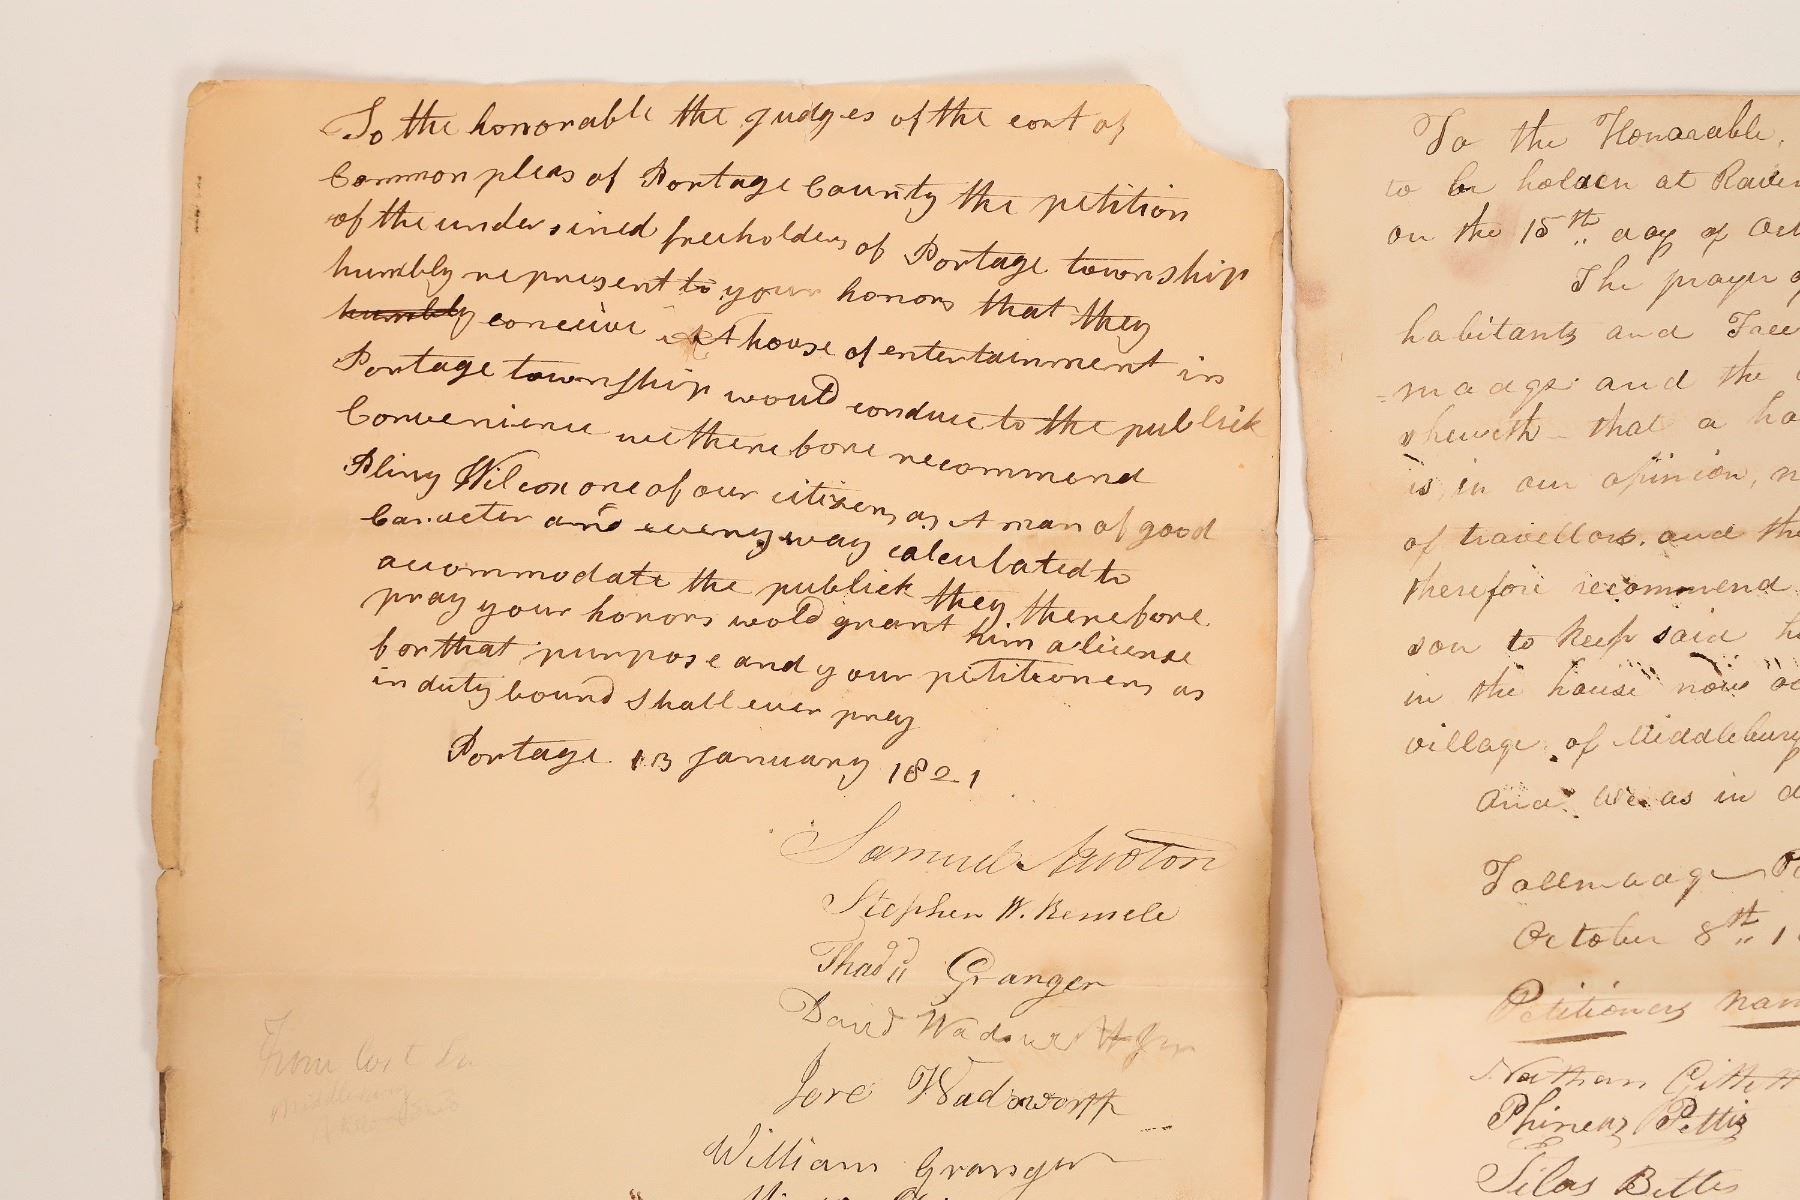 To the honorable the judges of the cort of
Common pleas of Portage County the petition
of the undersined freeholders of Portage township
humbly represent to your honors that they
humbly conceive A house of entertainment in
Portage township would conduce to the publick
Convenience we therefore recommend
Pliny Wilcox one of our citizens as A man of good
Caracter and every way calculated to
accommodate the publick they therefore
pray your honors wold grant him a license
for that purpose and your petitioners as
in duty bound shall ever pray
Portage 13 January 1821
Samuel Newton
Stephen W. Bemele
Thads Granger
David Wadsworth Jun
Jore Wadsworth
William Granger
From
Middlebury
To the Honorable,
to be holden at Raven
on the 15th day of Oct
The prayer of
habitants and Free
madge and the
sheweth that a ho
is, in our opinion, n
of travellors. and the
therefore recommend
son to keep said h
in the house now oc
village of Middlebury
And we as in d
Tallmadge Po
October 8th 1
Petitioners nam
Nathan Gillett
Phineas Pettis
Silas Bettes